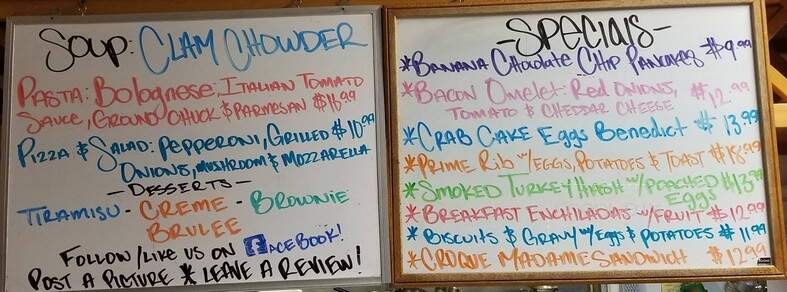 SOUP: CLAM CHOWDER
PASTA: Bolognese: ITALIAN TOMATO
SAUCE, GROUND CHUCK & PARMESAN $16.99
PIZZA & SALAD: PEPPERONI, GRILLED $10.99
ONIONS, MUSHROOM & MOZZARELLA
-DESSERTS-
TIRAMISU - CREME - BROWNIE
BRULEE
FOLLOW/LIKE US ON FACEBOOK!
POST A PICTURE * LEAVE A REVIEW!
-SPECIALS-
*BANANA CHOCOLATE CHIP PANCAKES $9.99
*BACON OMELET: RED ONIONS,
TOMATO & CHEDDAR CHEESE $12.99
*CRAB CAKE EGGS BENEDICT $13.99
*PRIME RIB W/EGGS, POTATOES & TOAST $18.99
*SMOKED TURKEY HASH W/POACHED
EGGS $13.99
*BREAKFAST ENCHILADAS W/FRUIT $12.99
*BISCUITS & GRAVY W/EGGS & POTATOES $11.99
*CROQUE MADAME SANDWICH $12.99